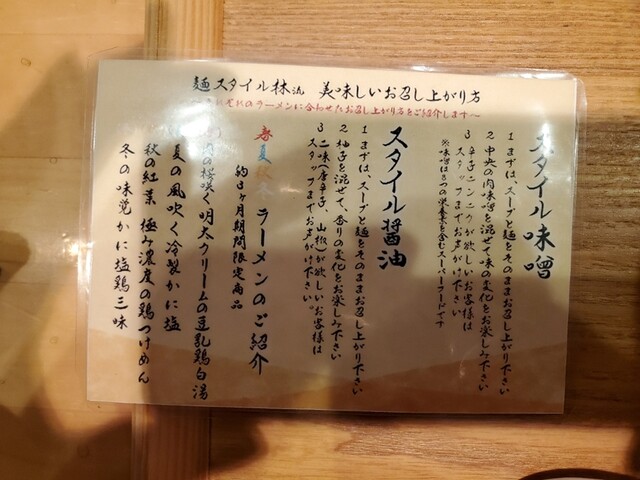 麺スタイル林流 美味しいお召し上がり方
のラーメンに合わせたお召し上がり方をご紹介します～
スタイル味噌
1 まずは、スープと麺をそのままお召し上がり下さい
2 中央の肉味噌を混ぜて味の変化をお楽しみ下さい
3 辛子ニンニクが欲しいお客様は
スタッフまでお声がけ下さい。
※味噌は5つの栄養素を含むスーパーフードです
スタイル醤油
1 まずは、スープと麺をそのままお召し上がり下さい
2 柚子を混ぜて、香りの変化をお楽しみ下さい
3 二味(唐辛子、山椒)が欲しいお客様は
スタッフまでお声がけ下さい。
春夏秋冬 ラーメンのご紹介
約3ヶ月期間限定商品
の桜咲く明太クリームの豆乳鶏白湯
夏の風吹く冷製かに塩
秋の紅葉 極み濃度の鶏つけめん
冬の味覚かに塩鶏三味